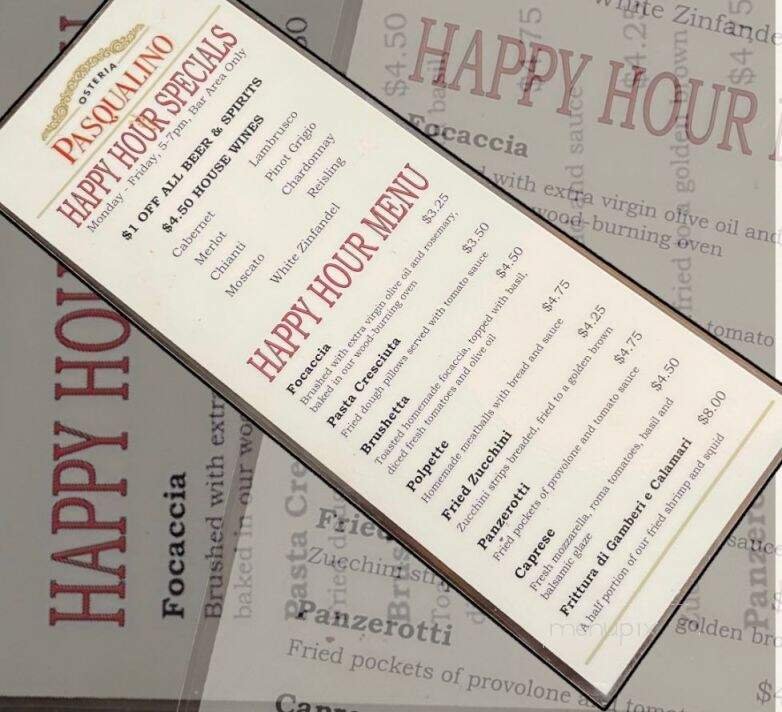 OSTERIA
PASQUALINO
HAPPY HOUR SPECIALS
Monday - Friday, 5-7pm, Bar Area Only
$1 OFF ALL BEER & SPIRITS
$4.50 HOUSE WINES
Cabernet
Merlot
Chianti
Moscato
Lambrusco
Pinot Grigio
Chardonnay
Reisling
White Zinfandel
HAPPY HOUR MENU
Focaccia $3.25
Brushed with extra virgin olive oil and rosemary,
baked in our wood-burning oven
Pasta Cresciuta $3.50
Fried dough pillows served with tomato sauce
Brushetta $4.50
Toasted homemade focaccia, topped with basil,
diced fresh tomatoes and olive oil
Polpette $4.75
Homemade meatballs with bread and sauce
Fried Zucchini $4.25
Zucchini strips breaded, fried to a golden brown
Panzerotti $4.75
Fried pockets of provolone and tomato sauce
Caprese $4.50
Fresh mozzarella, roma tomatoes, basil and
balsamic glaze
Frittura di Gamberi e Calamari $8.00
A half portion of our fried shrimp and squid
White Zinfande
HAPPY HOUR
Focaccia
with extra virgin olive oil and
wood-burning oven
tomato
$4.50
$4.75
$4.25
$4.5
basil
and sauce
fried to a golden brown
HAPPY HOU
Focaccia
Brushed with extr
baked in our wo
Pasta Cre
Fried d
Brus
Toa
Fried
Zucchini st
Panzerotti
Fried pockets of provolone a tom
Capr
sauce
golden bro
Panzer
menupix